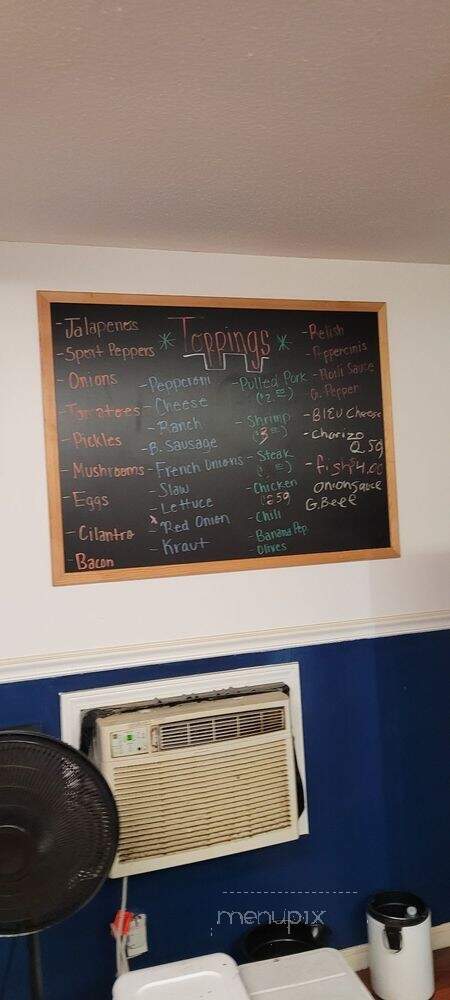 * Toppings *
- Jalapenos
- Sport Peppers
- Onions
- Tomatoes
- Pickles
- Mushrooms
- Eggs
- Cilantro
- Bacon
- Pepperoni
- Cheese
- Ranch
- B. Sausage
- French Onions
- Slaw
- Lettuce
- Red Onion
- Kraut
- Pulled Pork
- Shrimp
- Steak
- Chicken
2 59
- Chili
- Banana Pep.
- Olives
- Relish
- Sauce
- G. Pepper
- BlEU Cheese
- Chorizo
2.59
- fish $4.00
Onion Sauce
G. Beef
menupix